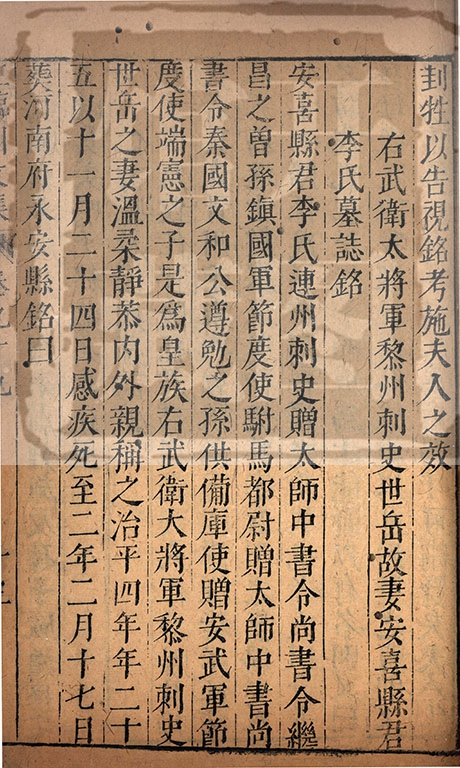 封牲以告視銘考施夫人之效
右武衛太將軍黎州刺史世岳故妻安喜縣君
李氏墓誌銘
安喜縣君李氏連州刺史贈太師中書令尚書令繼
昌之曾孫鎮國軍節度使駙馬都尉贈太師中書尚
書令秦國文和公遵勉之孫供備庫使贈安武軍節
度使端憲之子是爲皇族右武衛大將軍黎州刺史
世岳之妻溫柔靜恭內外親稱之治平四年年二十
五以十一月二十四日感疾死至二年二月十七日
葬河南府永安縣銘曰
臨川文集 卷九十九